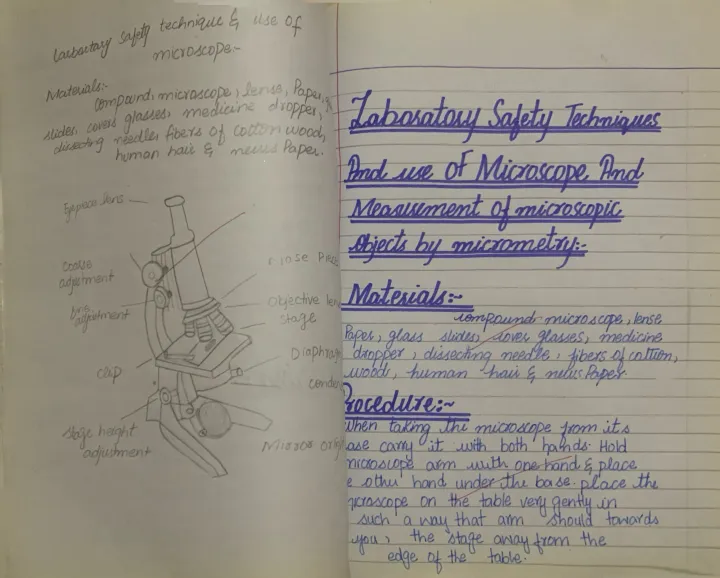 Laboratory Safety technique & use of
microscope:-
Materials:-
compound, microscope, lense, Paper,
slides, covers glasses, medicine dropper,
dissecting needle, fibers of cotton wood,
human hair & news Paper.
Eyepiece lens
coarse
adjustment
adjustment
clip
stage height
adjustment
nose Piece
Objective lens
stage
Diaphragm
conden
Mirror or
Laboratory Safety Techniques
And use of Microscope And
Measusement of microscopic
Objects by micrometry:-
Materials:-
compound microscope, lense
Paper, glass slides, cover glasses, medicine
dropper, dissecting needle, fibers of cottion,
wood, human hair & news Paper
Procedure:-
When taking the microscope from its
ase carry it with both hands. Hold
microscope arm with one hand & place
e other hand under the base. place the
icroscope on the table very gently in
such a way that arm should towards
you, the stage away from the
edge of the table.